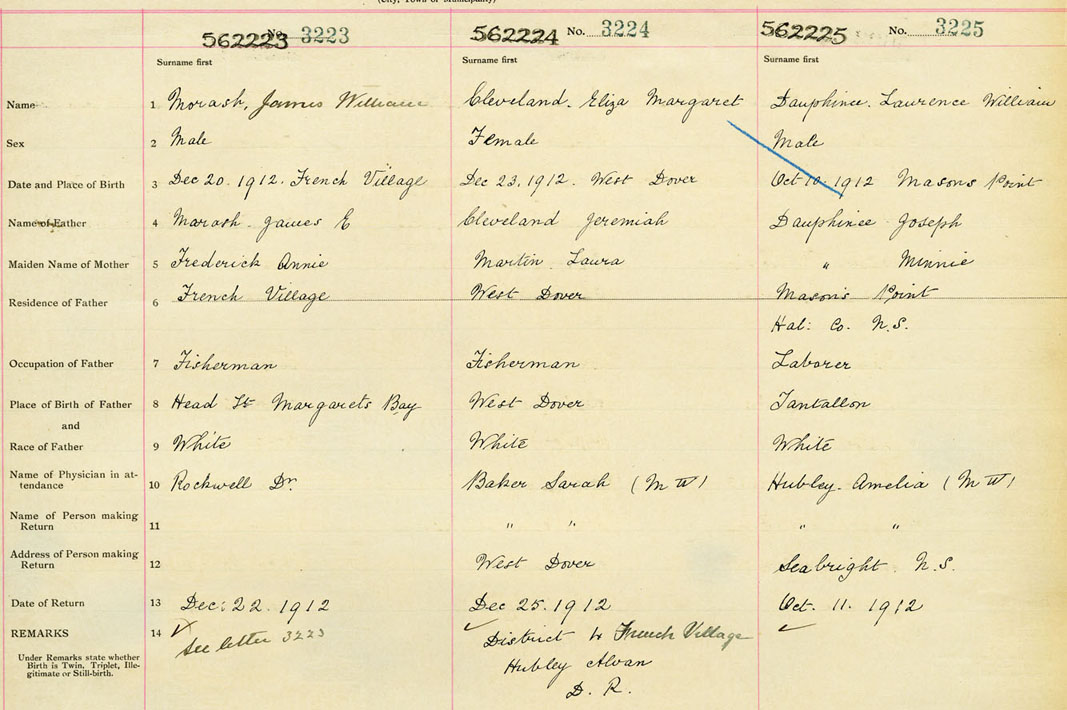 (City, Town or Municipality)
562223 No. 3223 562224 No. 3224 562225 No. 3225
Surname first Surname first Surname first
Name 1 Morash, James William Cleveland. Eliza Margaret Dauphinee. Laurence William
Sex 2 Male Female Male
Date and Place of Birth 3 Dec 20. 1912. French Village Dec 23, 1912. West Dover Oct 10. 1912 Masons Point
Name of Father 4 Morash James E Cleveland Jeremiah Dauphinee Joseph
Maiden Name of Mother 5 Frederick Annie Martin Laura " Minnie
Residence of Father 6 French Village West Dover Mason's Point
Hal: Co. N.S.
Occupation of Father 7 Fisherman Fisherman Laborer
Place of Birth of Father 8 Head St Margarets Bay West Dover Tantallon
and
Race of Father 9 White White White
Name of Physician in at-
tendance 10 Rockwell Dr. Baker Sarah (M W) Hubley. Amelia (M W)
Name of Person making
Return 11 " " " "
Address of Person making
Return 12 West Dover Seabright N.S.
Date of Return 13 Dec: 22. 1912 Dec 25. 1912 Oct. 11. 1912
REMARKS 14 See letter 3223 District 4 French Village
Under Remarks state whether
Birth is Twin, Triplet, Ille-
gitimate or Still-birth.
Hubley Alvan
D. R.